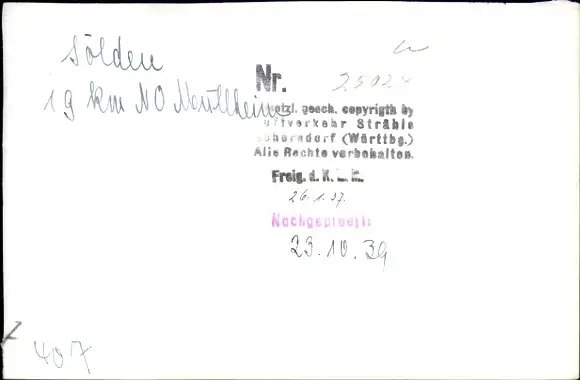 Sölden
19 km NO Müllheim
Nr. 25024
gesetzl. gesch. copyrigth by
Luftverkehr Strähle
Schorndorf (Württbg.)
Alle Rechte vorbehalten.
Freig. d. R. L. M.
26.1.37.
Nachgeprüft:
23.10.39
407